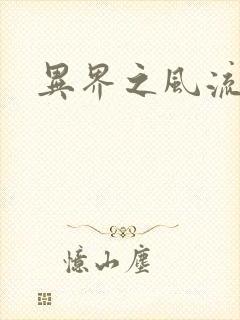 異界之風流
憶山塵